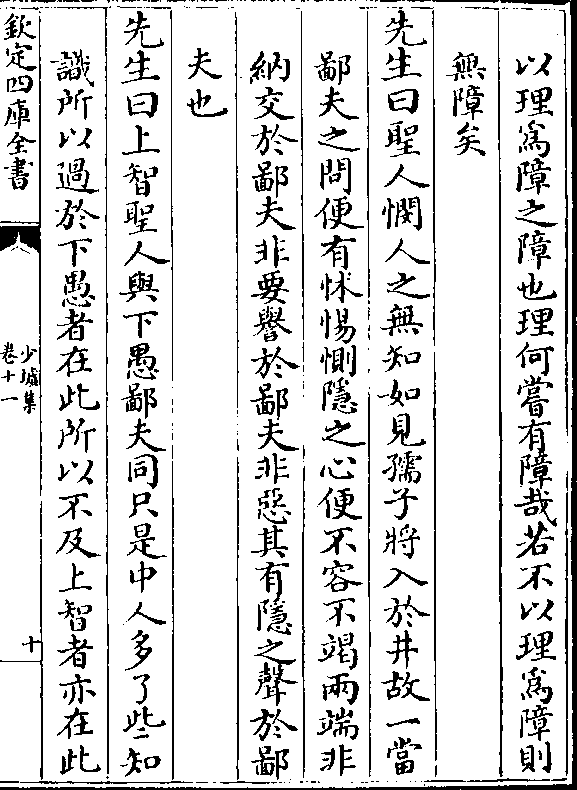 以理為障之障也理何嘗有障哉若不以理為障則
無障矣
先生曰聖人憫人之無知如見孺子將入於井故一當
鄙夫之問便有怵惕惻隱之心便不容不竭兩端非
納交於鄙夫非要譽於鄙夫非惡其有隱之聲於鄙
夫也
先生曰上智聖人與下愚鄙夫同只是中人多了些知
識所以過於下愚者在此所以不及上智者亦在此
欽定四庫全書
少墟集
卷十一
十